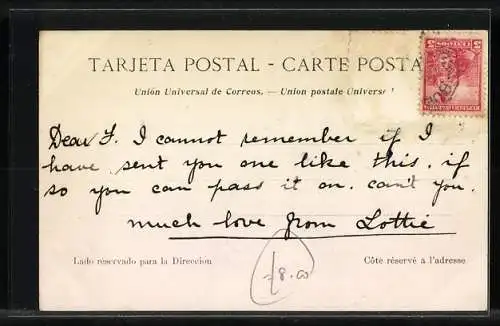 TARJETA POSTAL - CARTE POSTA
Unión Universal de Correos. — Union postale Universe
Dear F. I cannot remember if I
have sent you one like this. if
so you can pass it on. can't you.
much love from Lottie
Lado reservado para la Direccion
Côté réservé à l'adresse
78.00